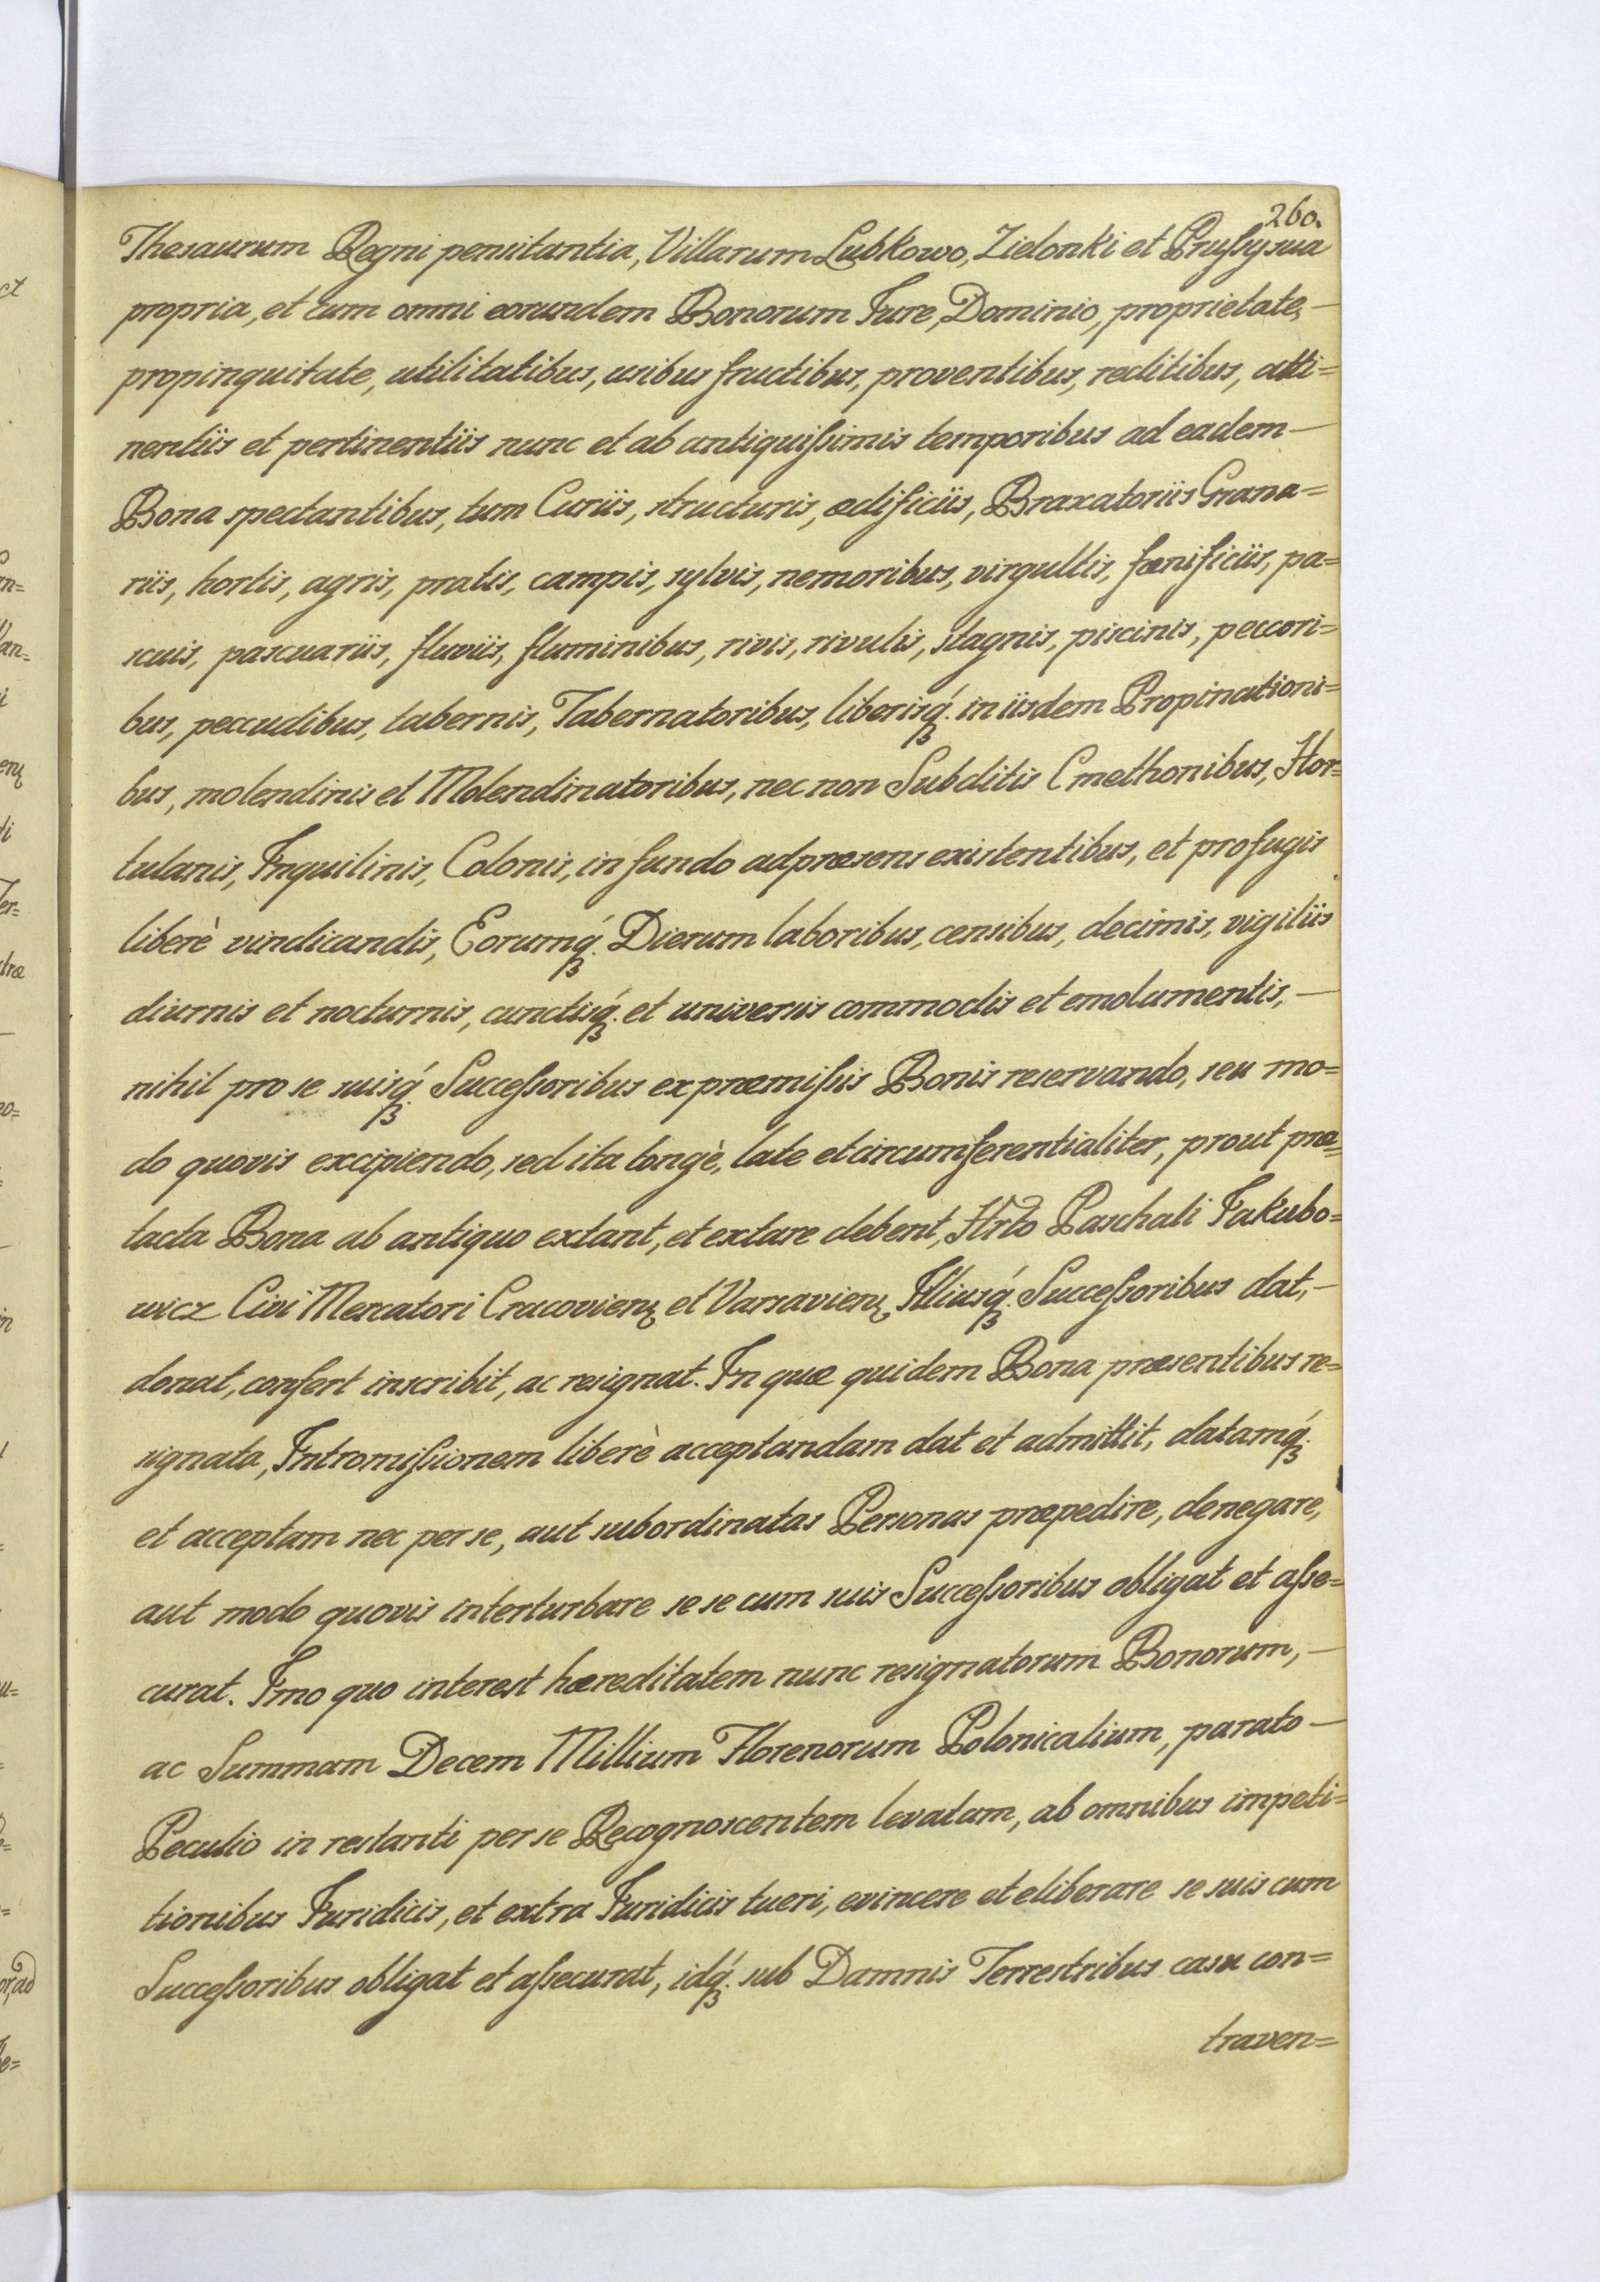 260.
Thesaurum Regni pensitantia, Villarum Lubkowo, Zielonki et Prussy sua
propria, et cum omni eorundem Bonorum Jure, Dominio, proprietate, —
propinquitate, utilitatibus, usibus fructibus, proventibus, reditibus, atti=
nentiis et pertinentiis nunc et ab antiquissimis temporibus ad eadem —
Bona spectantibus, tum Curiis, structuris, ædificiis, Braxatoriis Grana=
riis, hortis, agris, pratis, campis, sylvis, nemoribus, virgultis, fœnificiis, pa=
scuis, pascuariis, fluviis, fluminibus, rivis, rivulis, stagnis, piscinis, peccori=
bus, peccudibus, tabernis, Tabernatoribus, liberisq́ꝫ. in iisdem Propinationi=
bus, molendinis et Molendinatoribus, nec non Subditis Cmethonibus, Hor=
tulanis, Inquilinis, Colonis, in fundo adpræsens existentibus, et profugis
liberè vindicandis, Eorumq́ꝫ. Dierum laboribus, censibus, decimis, vigiliis
diurnis et nocturnis, cunctisq́ꝫ. et universis commodis et emolumentis, —
nihil pro se suisq́ꝫ. Successoribus ex præmissis Bonis reservando, seu mo=
do quovis excipiendo, sed ita longè, late et circumferentialiter, prout præ=
tacta Bona ab antiquo extant, et extare debent, Hrto Paschali Jakubo=
wicz Civi Mercatori Cracovienꝫ et Varsavienꝫ, Illiusq́ꝫ. Successoribus dat, —
donat, confert inscribit, ac resignat. In quæ quidem Bona præsentibus re=
signata, Intromissionem liberè acceptandam dat et admittit, datamq́ꝫ.
et acceptam nec per se, aut subordinatas Personas præpedire, denegare,
aut modo quovis interturbare se se cum suis Successoribus obligat et asse=
curat. Imo quo interest hæreditatem nunc resignatorum Bonorum, —
ac Summam Decem Millium Florenorum Polonicalium, parato —
Peculio in restanti per se Recognoscentem levatam, ab omnibus impeti=
tionibus Juridicis, et extra Juridicis tueri, evincere et eliberare se suis cum
Successoribus obligat et assecurat, idq́ꝫ. sub Damnis Terrestribus casu con=
traven=